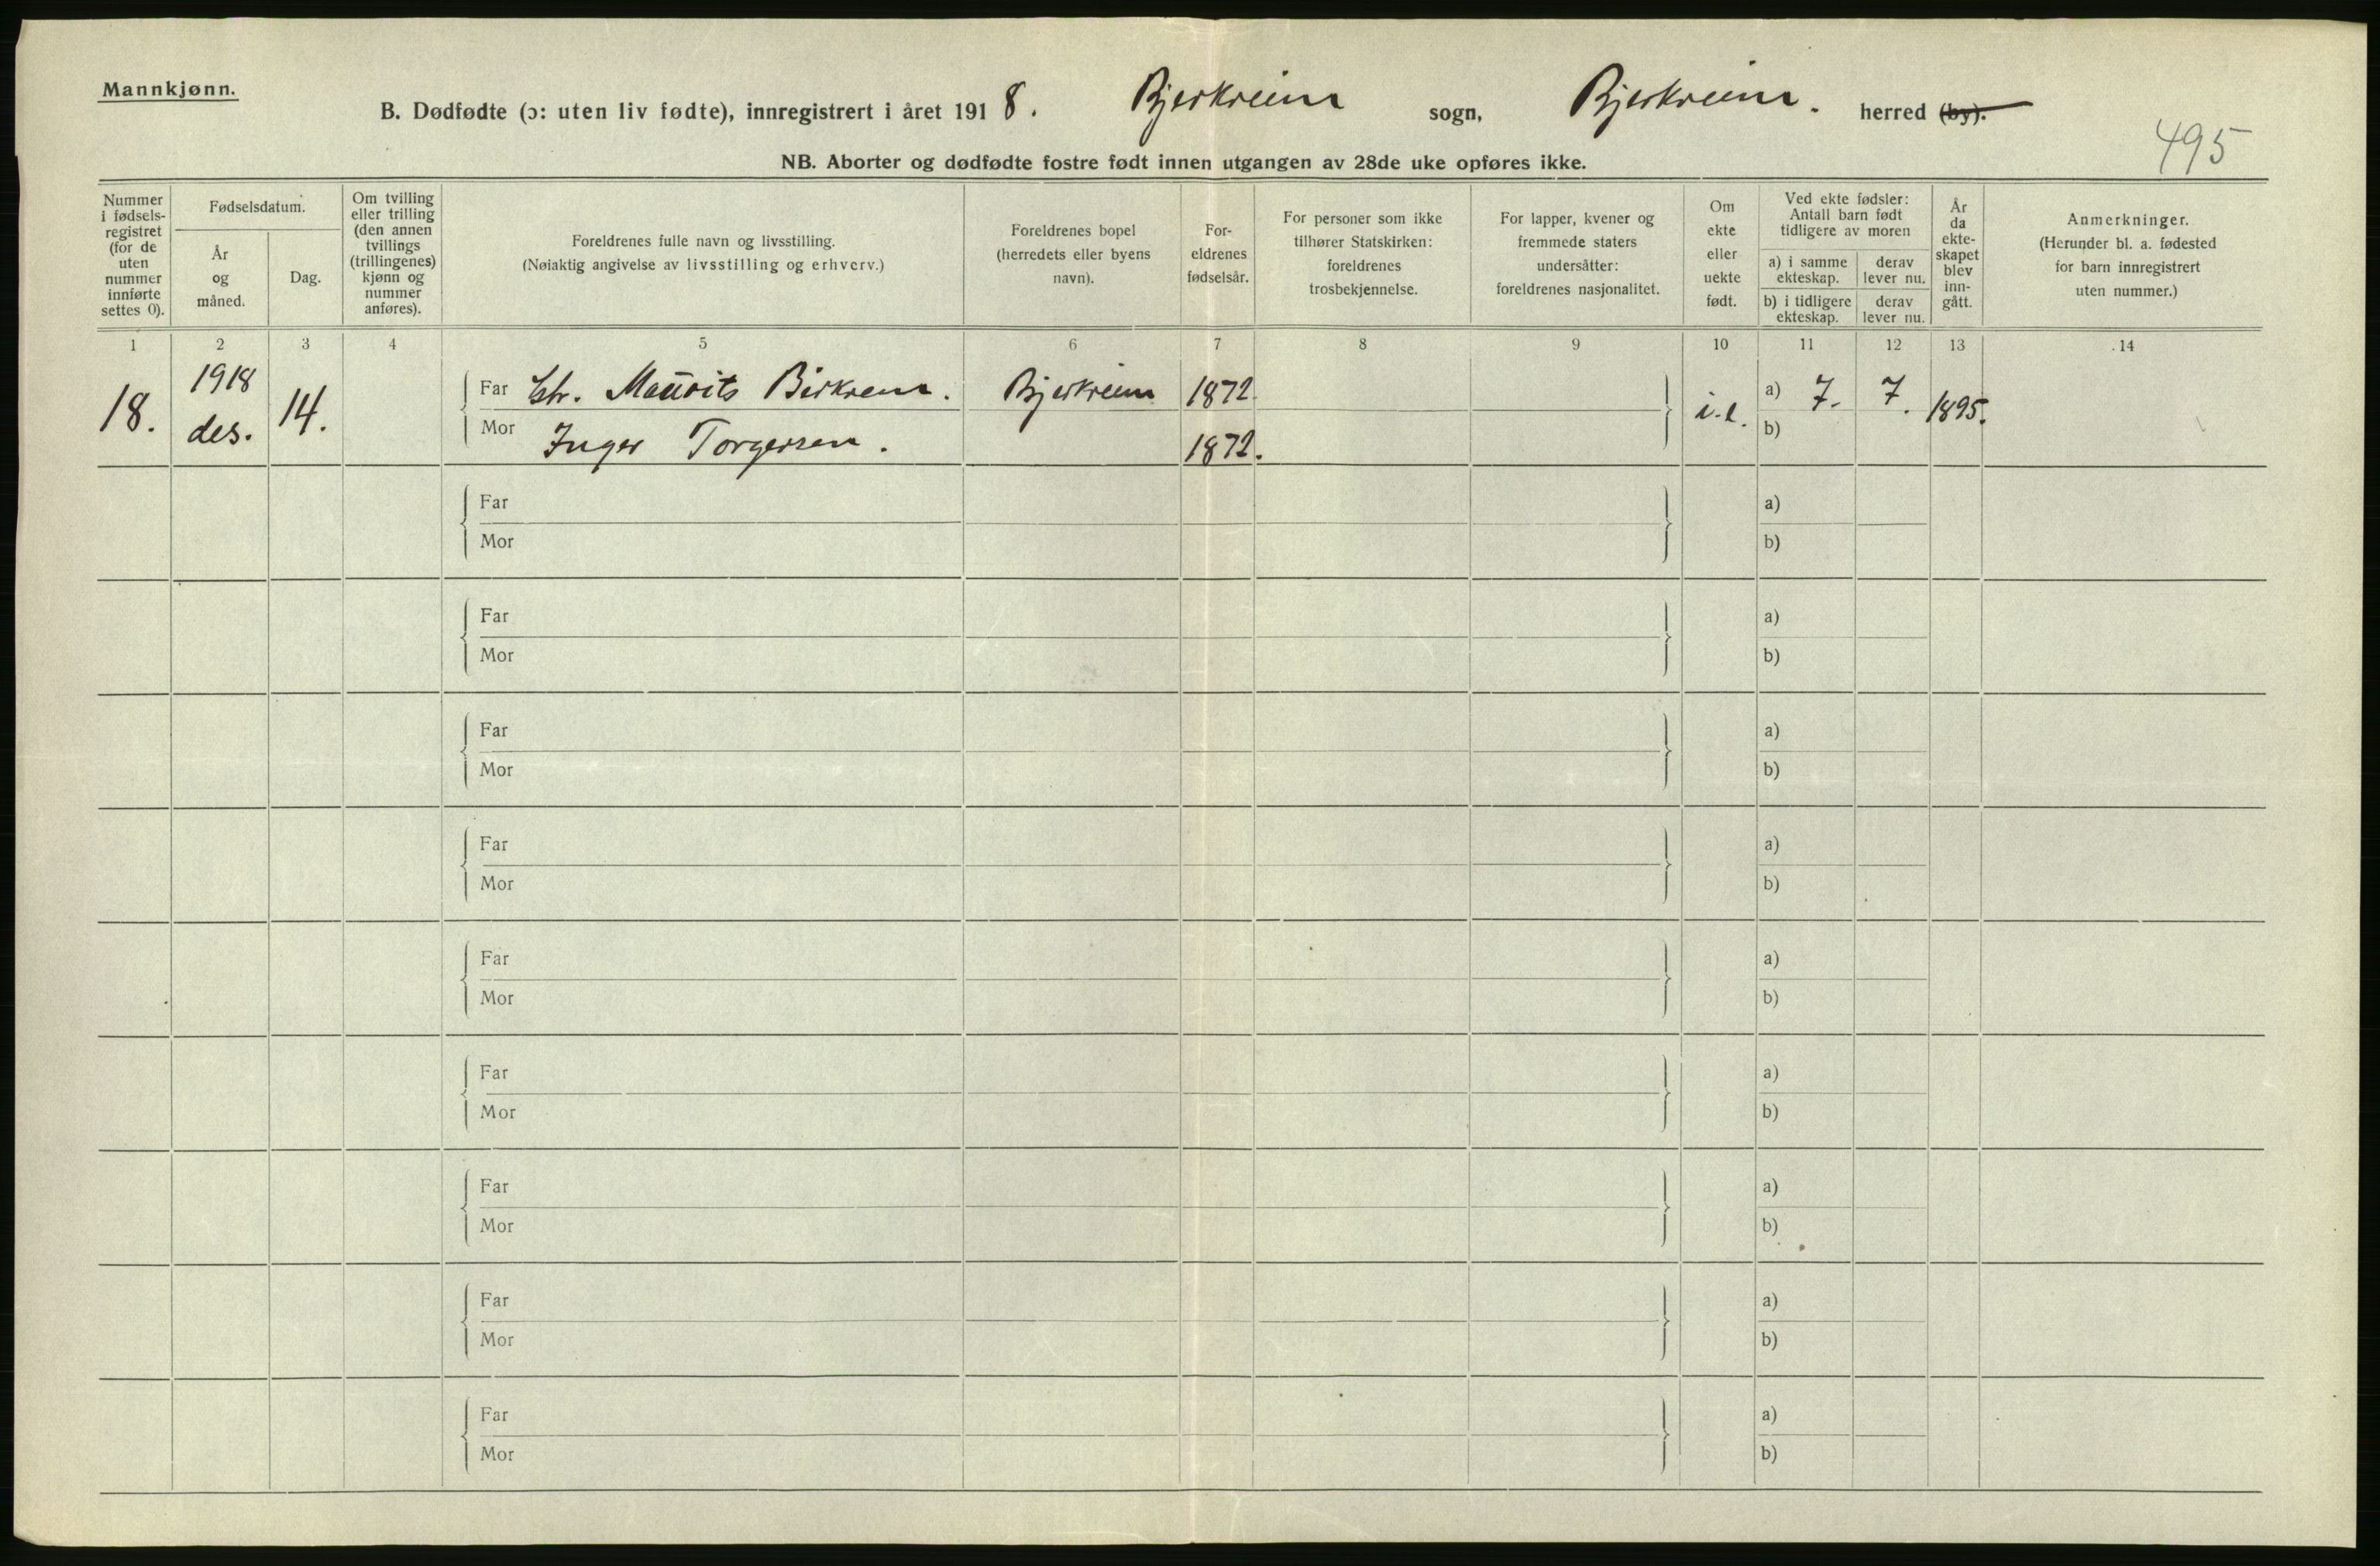 Mannkjønn.
B. Dødfødte (ɔ: uten liv fødte), innregistrert i året 1918. Bjerkreim sogn, Bjerkreim. herred (by).
495
NB. Aborter og dødfødte fostre født innen utgangen av 28de uke opføres ikke.
Nummer
i fødsels-
registret
(for de
uten
nummer
innførte
settes 0).
Fødselsdatum.
År
og
måned.
Dag.
Om tvilling
eller trilling
(den annen
tvillings
(trillingenes)
kjønn og
nummer
anføres).
Foreldrenes fulle navn og livsstilling.
(Nøiaktig angivelse av livsstilling og erhverv.)
Foreldrenes bopel
(herredets eller byens
navn).
For-
eldrenes
fødselsår.
For personer som ikke
tilhører Statskirken:
foreldrenes
trosbekjennelse.
For lapper, kvener og
fremmede staters
undersåtter:
foreldrenes nasjonalitet.
Om
ekte
eller
uekte
født.
Ved ekte fødsler:
Antall barn født
tidligere av moren
a) i samme
ekteskap.
derav
lever nu.
b) i tidligere
ekteskap.
derav
lever nu.
År
da
ekte-
skapet
blev
inn-
gått.
Anmerkninger.
(Herunder bl. a. fødested
for barn innregistrert
uten nummer.)
1 2 3 4 5 6 7 8 9 10 11 12 13 14
18. 1918 des. 14.
Far Chr. Maurits Birkrem. Bjerkreim 1872. i.e. a) 7. 7. 1895.
Mor Inger Torgersen. 1872. b)
Far a)
Mor b)
Far a)
Mor b)
Far a)
Mor b)
Far a)
Mor b)
Far a)
Mor b)
Far a)
Mor b)
Far a)
Mor b)
Far a)
Mor b)
Far a)
Mor b)